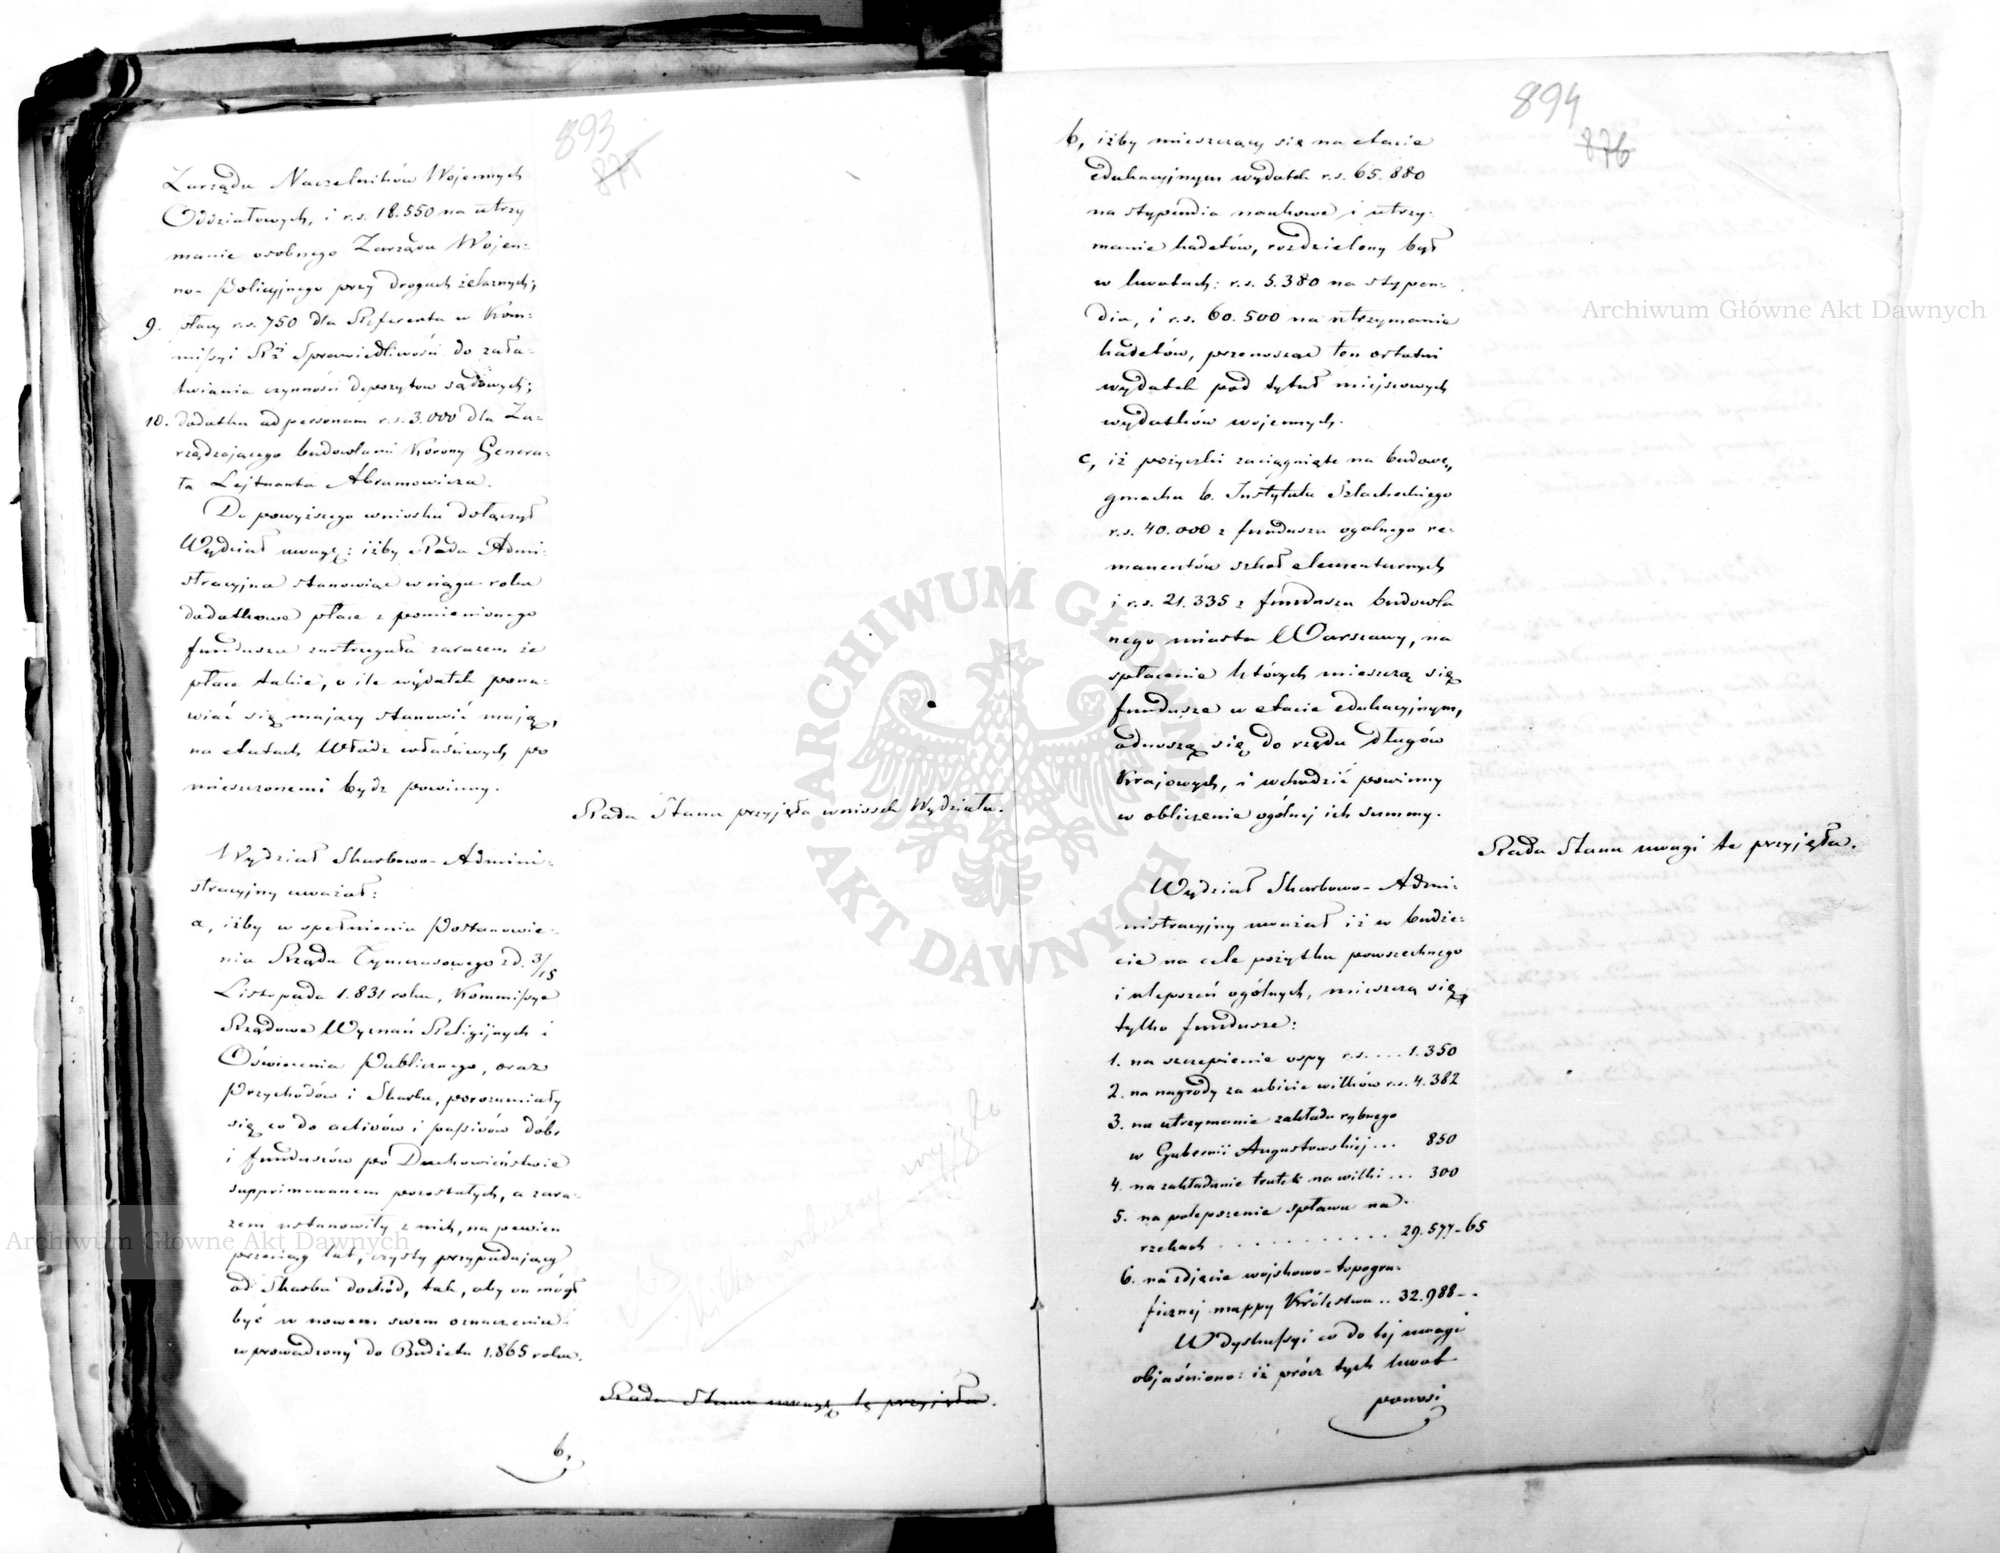 893
875
Zarządu Naczelników Wojennych
Oddziałowych, i r.s. 18.550 na utrzy
manie osobnego Zarządu Wojen-
no-Policyjnego przy drogach żelaznych;
9. płacy r.s. 750 dla Referenta w Kom-
missyi Rz. Sprawiedliwości do zała-
twiania czynności depozytów sądowych;
10. dodatku ad personam r.s. 3.000 dla Za-
rządzającego budowlami Korony Genera-
ła Lejtnanta Abramowicza.
Do powyższego wniosku dołączył
Wydział uwagę: iżby Rada Admi-
stracyjna stanowiąc w ciągu roku
dodatkowe płace z pomienionego
funduszu zastrzegała zarazem że
płace takie, o ile wydatek pona-
wiać się mający stanowić mają,
na etatach Władz właściwych, po
mieszczonemi bydź powinny.
Rada Stanu przyjęła wniosek Wydziału.
Wydział Skarbowo-Admini-
stracyjny uważał:
a, iżby w spełnieniu Postanowie-
nia Rządu Tymczasowego z d. 3/15
Listopada 1.831 roku, Kommissye
Rządowe Wyznań Religijnych i
Oświecenia Publicznego, oraz
Przychodów i Skarbu, porozumiały
się co do activów i passivów dóbr
i funduszów po Duchowieństwie
supprimowanem pozostałych, a zara-
zem ustanowiły z nich, na pewien
przeciąg lat, czysty przypadający
od Skarbu dochód, tak, aby on mógł
być w nowem swem oznaczeniu
wprowadzony do Budżetu 1.865 roku.
Rada Stanu uwagę tę przyjęła.
b,
894
876
b, iżby mieszczący się na etacie
edukacyjnym wydatek r.s. 65.880
na stypendia naukowe i utrzy-
manie kadetów, rozdzielony był
w kwotach: r.s. 5.380 na stypen-
dia, i r.s. 60.500 na utrzymanie
kadetów, przenosząc ten ostatni
wydatek pod tytuł miejscowych
wydatków wojennych.
c, iż pożyczki zaciągnięte na budowę,
gmachu b. Instytutu Szlacheckiego
r.s. 40.000 z funduszu ogólnego re-
manentów szkół elementarnych
i r.s. 21.335 z funduszu budowla
nego miasta Warszawy, na
spłacenie których mieszczą się
fundusze w etacie edukacyjnym,
odnoszą się do rzędu długów
Krajowych, i wchodzić powinny
w obliczenie ogólnej ich summy.
Rada Stanu uwagi te przyjęła.
Wydział Skarbowo-Admi-
nistracyjny uważał iż w budże-
cie na cele pożytku powszechnego
i ulepszeń ogólnych, mieszczą się
tylko fundusze:
1. na szczepienie ospy r.s. .... 1.350
2. na nagrody za ubicie wilków r.s. 4.382
3. na utrzymanie zakładu rybnego
w Gubernii Augustowskiej ... 850
4. na zakładanie trutek na wilki ... 300
5. na polepszenie spławu na
rzekach ........... 29.577-65
6. na zdjęcie wojskowo-topogra-
ficznej mappy Królestwa .. 32.988-.
W dyskussyi co do tej uwagi
objaśniono: iż prócz tych kwot
ponosi
Archiwum Główne Akt Dawnych
Archiwum Główne Akt Dawnych
ARCHIWUM GŁÓWNE AKT DAWNYCH